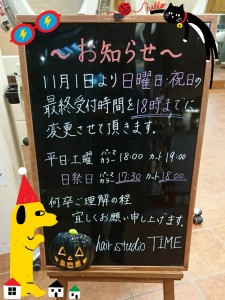 hello
～お知らせ～
11月1日より日曜日・祝日の
最終受付時間を18時までに
変更させて頂きます。
平日・土曜 パーマ カラー 18:00 カット 19:00
日祭日 パーマ カラー 17:30 カット 18:00
何卒ご理解の程
宜しくお願い申し上げます。
hair studio TIME